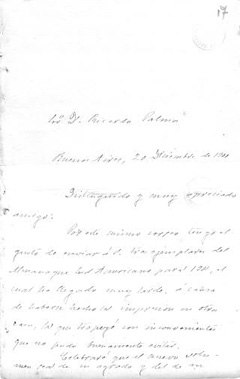 17
Sor. Dn. Ricardo Palma
Buenos Aires, 20 Diciembre de
Distinguido y muy apreciado
amigo:
Por este mismo correo tengo el
gusto de enviar á U. tres ejemplares del
Almanaque Sud Americano para el
cual ha llegado muy tarde, á causa
de haberse hecho la impresion en otra
casa, lo que tropezó con inconvenientes
que no pude buenamente evitar.
Celebraré que el nuevo volu-
men sea de su agrado y el de su